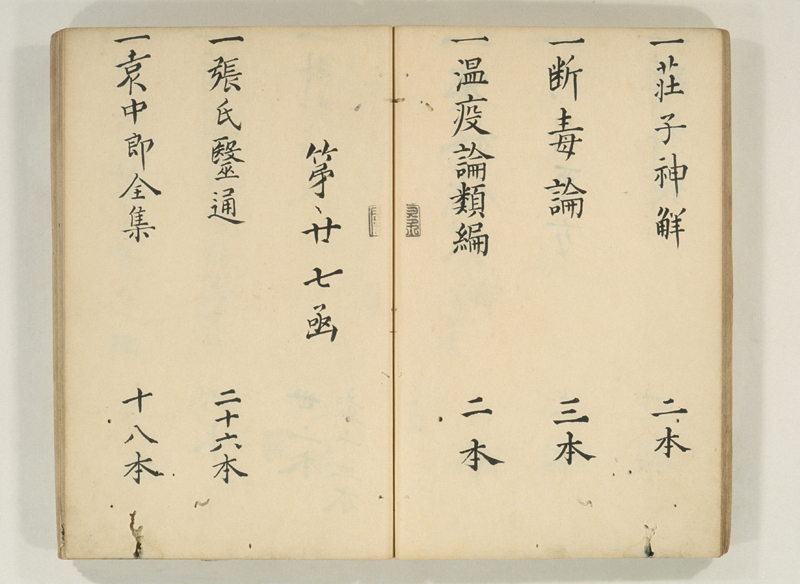 一荘子神觧 二本
一断毒論 三本
一温疫論類編 二本
第廿七凾
一張氏醫通 二十六本
一袁中郎全集 十八本